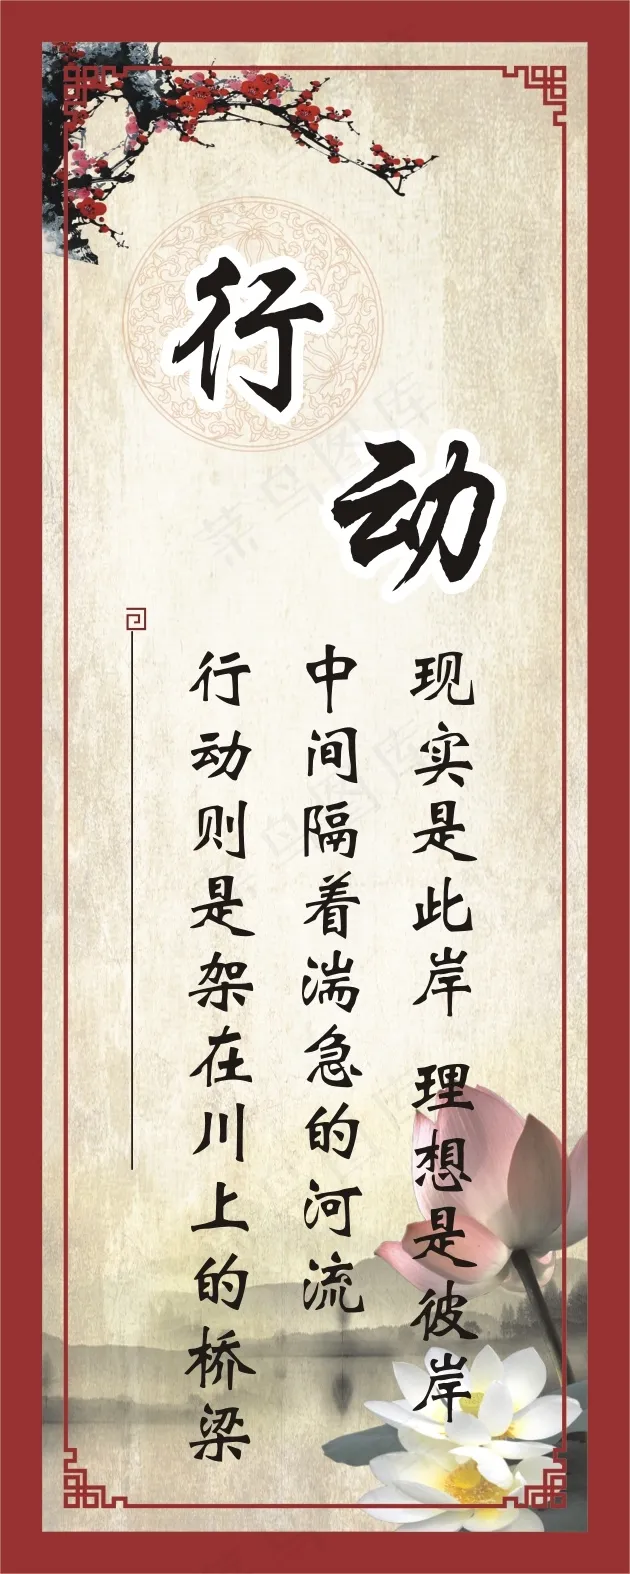 行动
现实是此岸 理想是彼岸
中间隔着湍急的河流
行动则是架在川上的桥梁
菜鸟图库